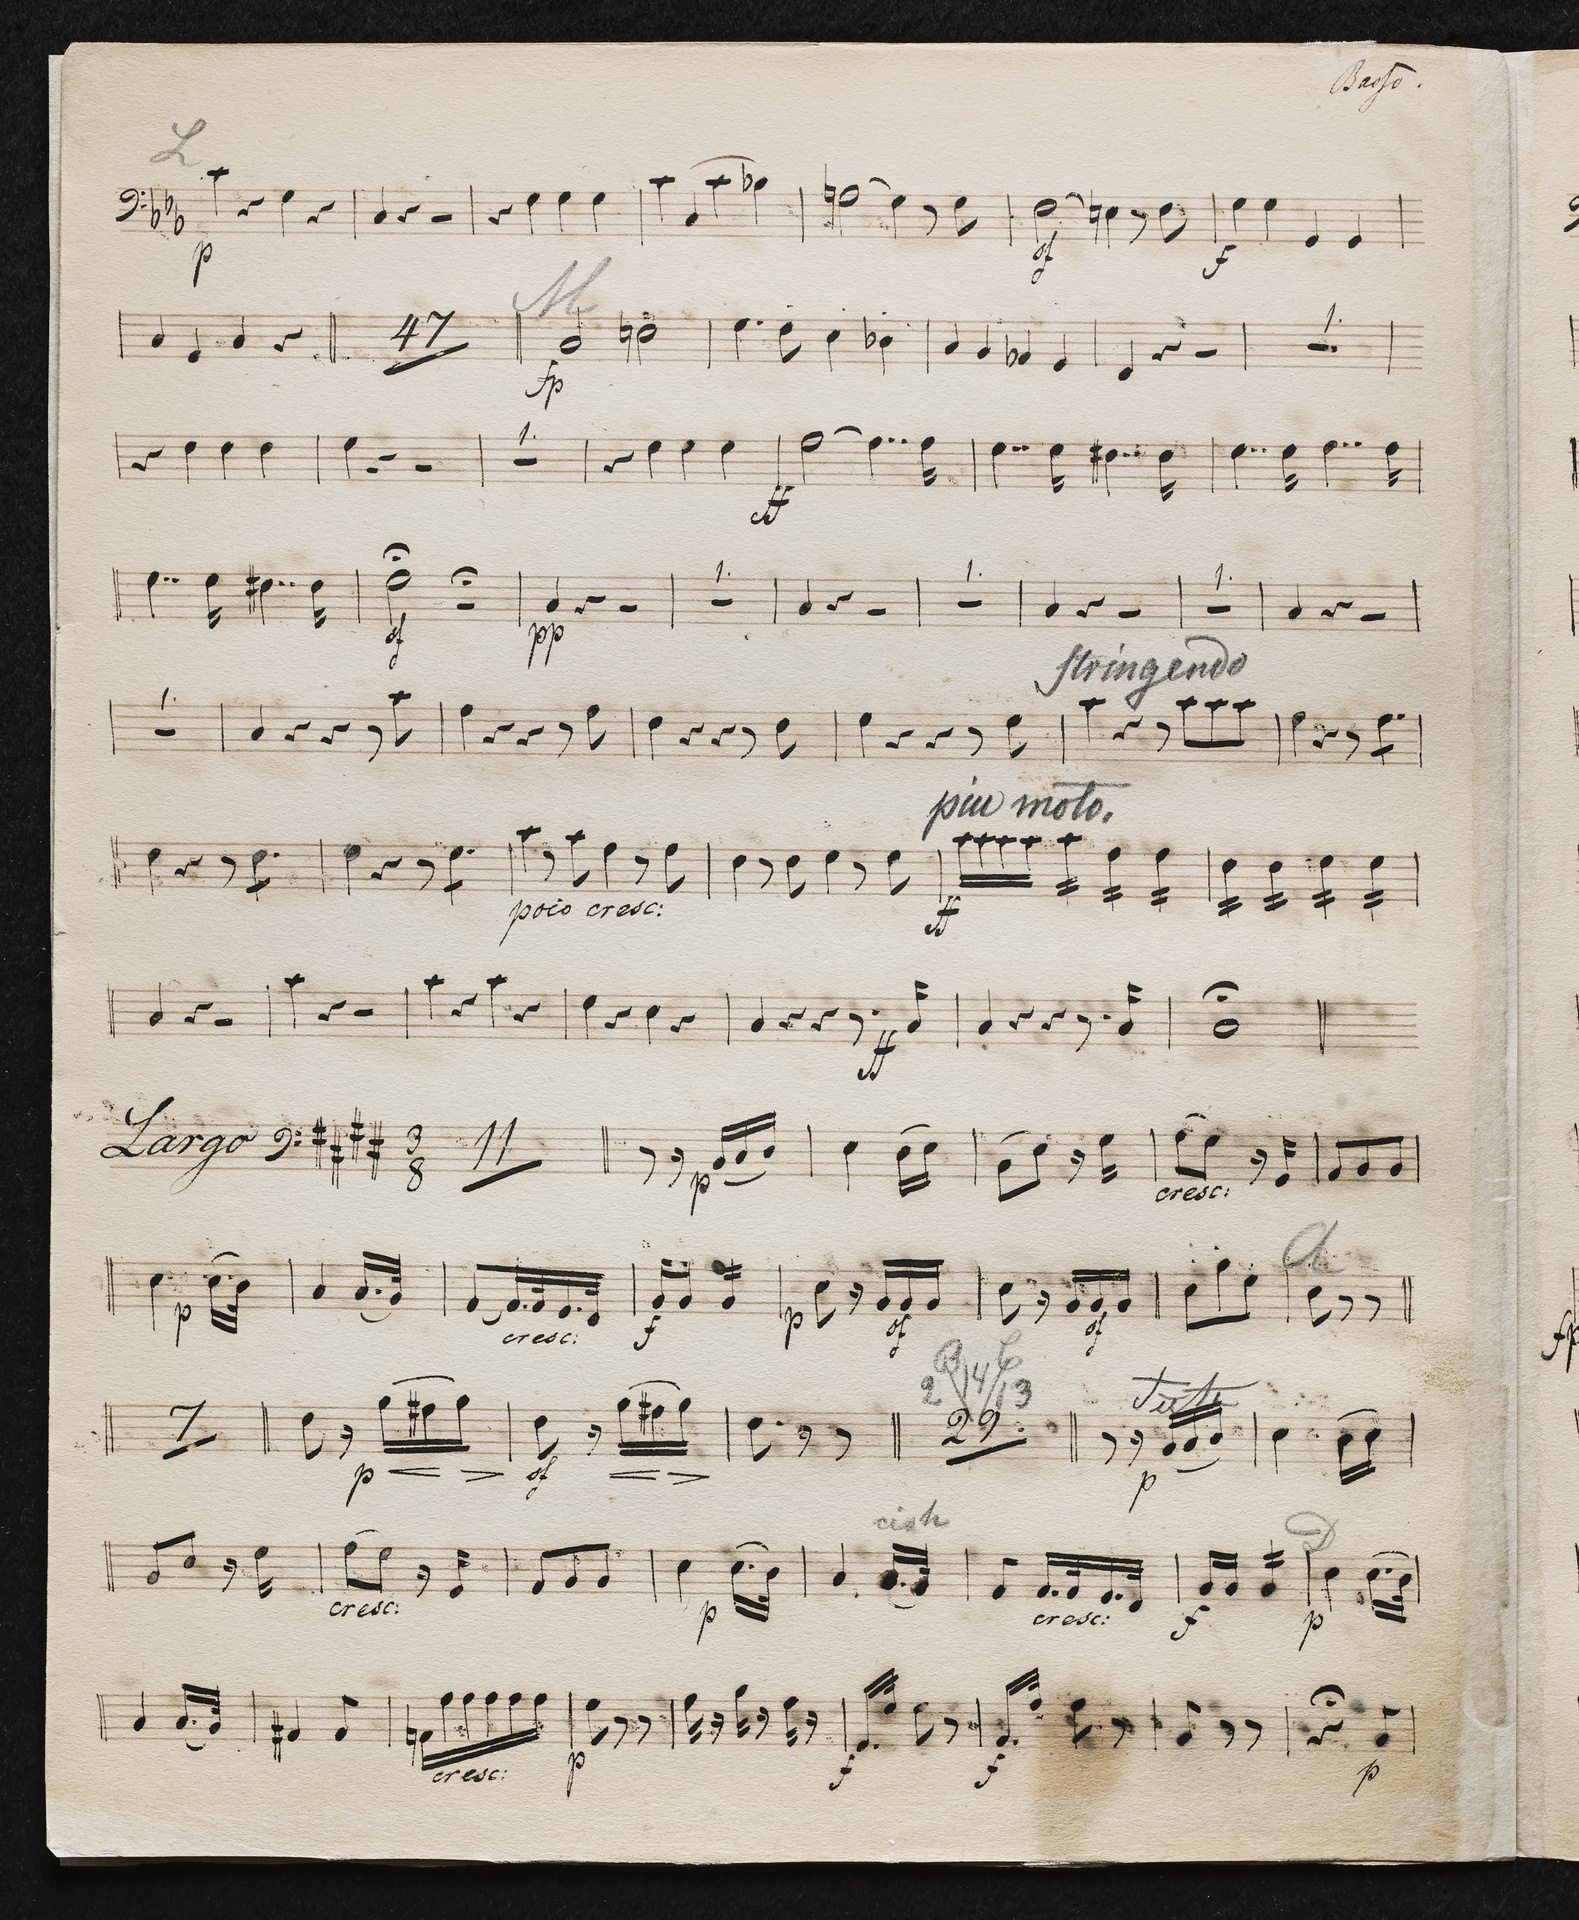 Basso.
L
p sf f
47 M
fp 1.
1. ff
sf pp 1. 1. 1.
stringendo
1.
piu moto.
poco cresc: ff
ff
Largo 3/8 11 p cresc:
A
p cresc: f p sf p sf
B C
2 14 13
7 p sf 29. Tutti p
cish D
cresc: p cresc: f p
cresc: p f f p